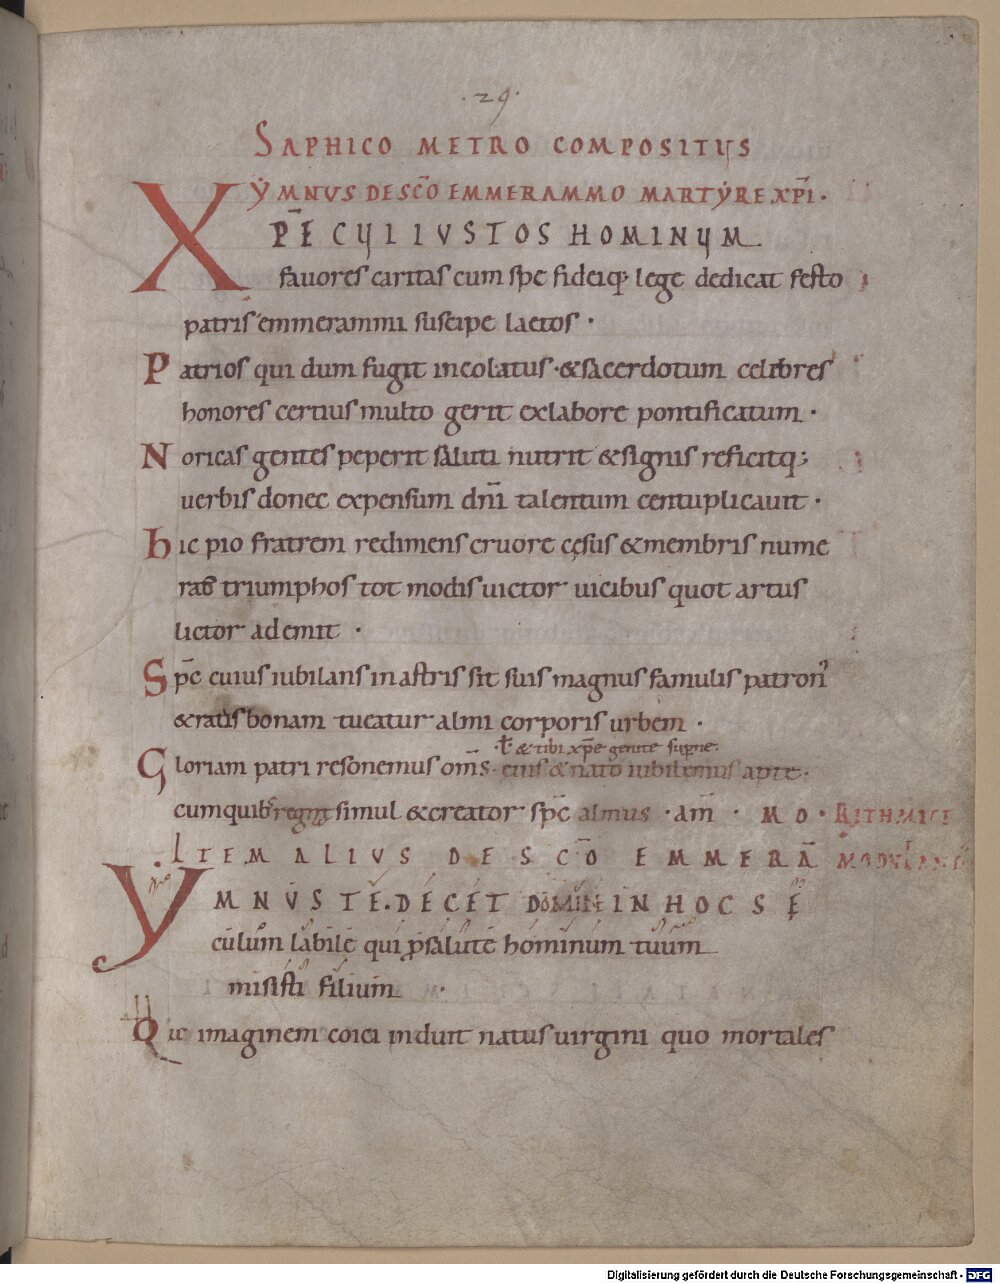 ·29·
SAPHICO METRO COMPOSITUS
YMNUS DE SC̅O EMMERAMMO MARTYRE XP̅I·
XP̅E CULI IUSTOS HOMINUM
fauores caritas cum spe fideiq; lege dedicat festo
patris emmerammi suscipe laetos ·
Patrios qui dum fugit incolatus · & sacerdotum celibres
honores certius multo gerit ex labore pontificatum ·
Noricas gentes peperit saluti nutrit & signis reficitq;
uerbis donec expensum dn̅i talentum centuplicauit ·
hic pio fratrem redimens cruore cęsus & membris nume
rat triumphos tot modis uictor uicibus quot artus
lictor ademit ·
Sp̅e cuius iubilans in astris sit suis magnus famulis patron'
& ratis bonam tueatur almi corporis urbem ·
ł & tibi xp̅e genite
Gloriam patri resonemus om̅s · eius & nato iubilemus apte ·
cum quib; simul & creator sp̅c almus · am̅ · MO · RITHMICE
ITEM ALIUS DE SC̅O EMMERA̅ MODULAND
YMNUS TE · DECET DOMINE IN HOC SĘ
culum labile qui p̱ salute hominum tuum
misisti filium ·
Qui imaginem coici induit natus uirgini quo mortales
Digitalisierung gefördert durch die Deutsche Forschungsgemeinschaft · DFG